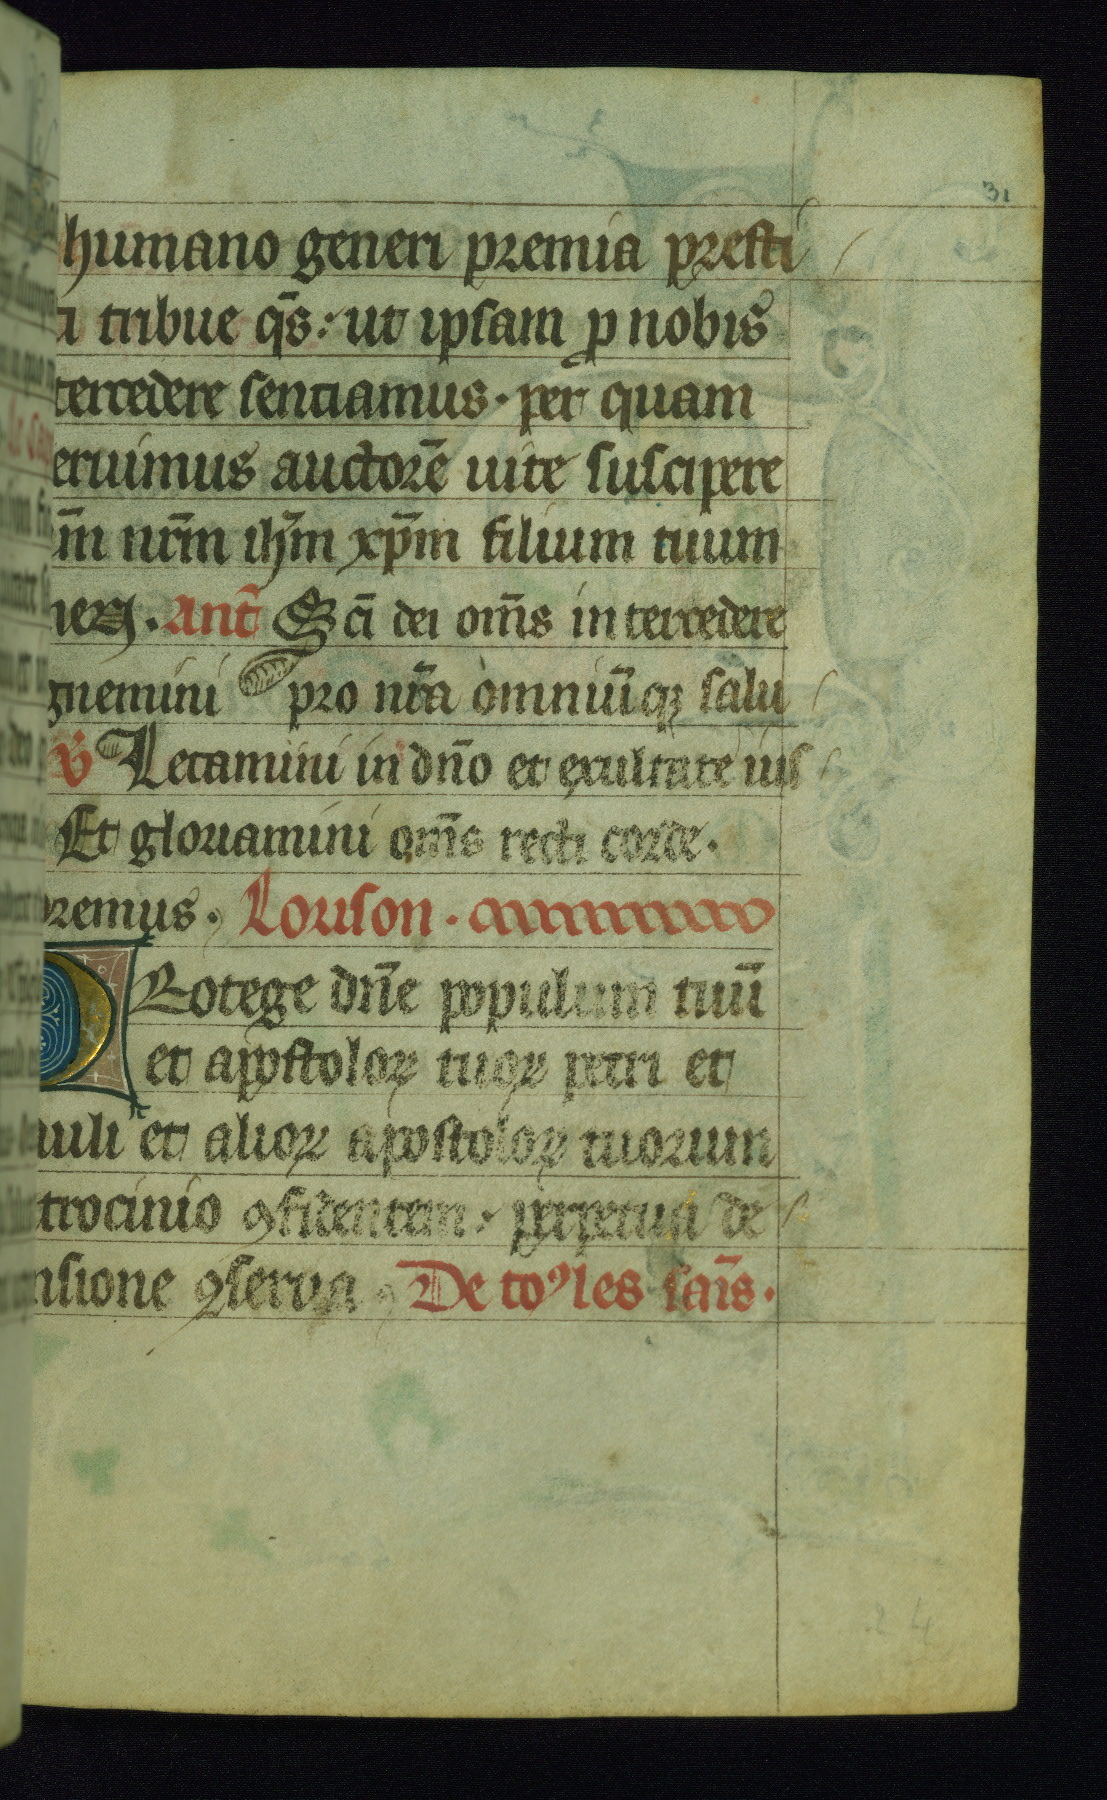 31
humano generi premia presti
tribue q̄s: ut ipsam p nobis
tercedere sentiamus. per quam
eruimus auctorē uite suscipere
nr̄m ihm̄ xp̄m filium tuum
Ant̄ Sc̄i dei om̄s intercedere
gnemini pro nr̄a omniūq; salu
v̄ Letamini in dn̄o et exultate ius
Et gloriamini om̄s recti corde.
oremus. Lorison.
Rotege dn̄e populum tuū
et apostoloꝝ tuoꝝ petri et
auli et alioꝝ apostoloꝝ tuorum
trocinio ꝯfidentem: perpetua de
nsione ꝯserva De toꝰles sāis.
24